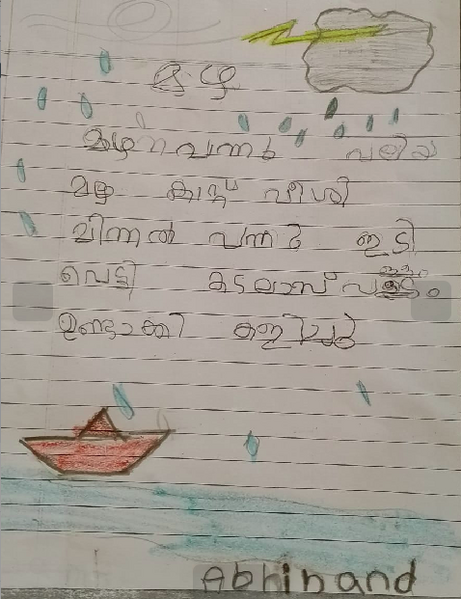 മഴ
മഴ വന്നു വലിയ
മഴ കാറ്റ് വീശി
മിന്നൽ വന്നു ഇടി
വെട്ടി കടലാസ്
ഉണ്ടാക്കി കളിച്ചു
Abhinand